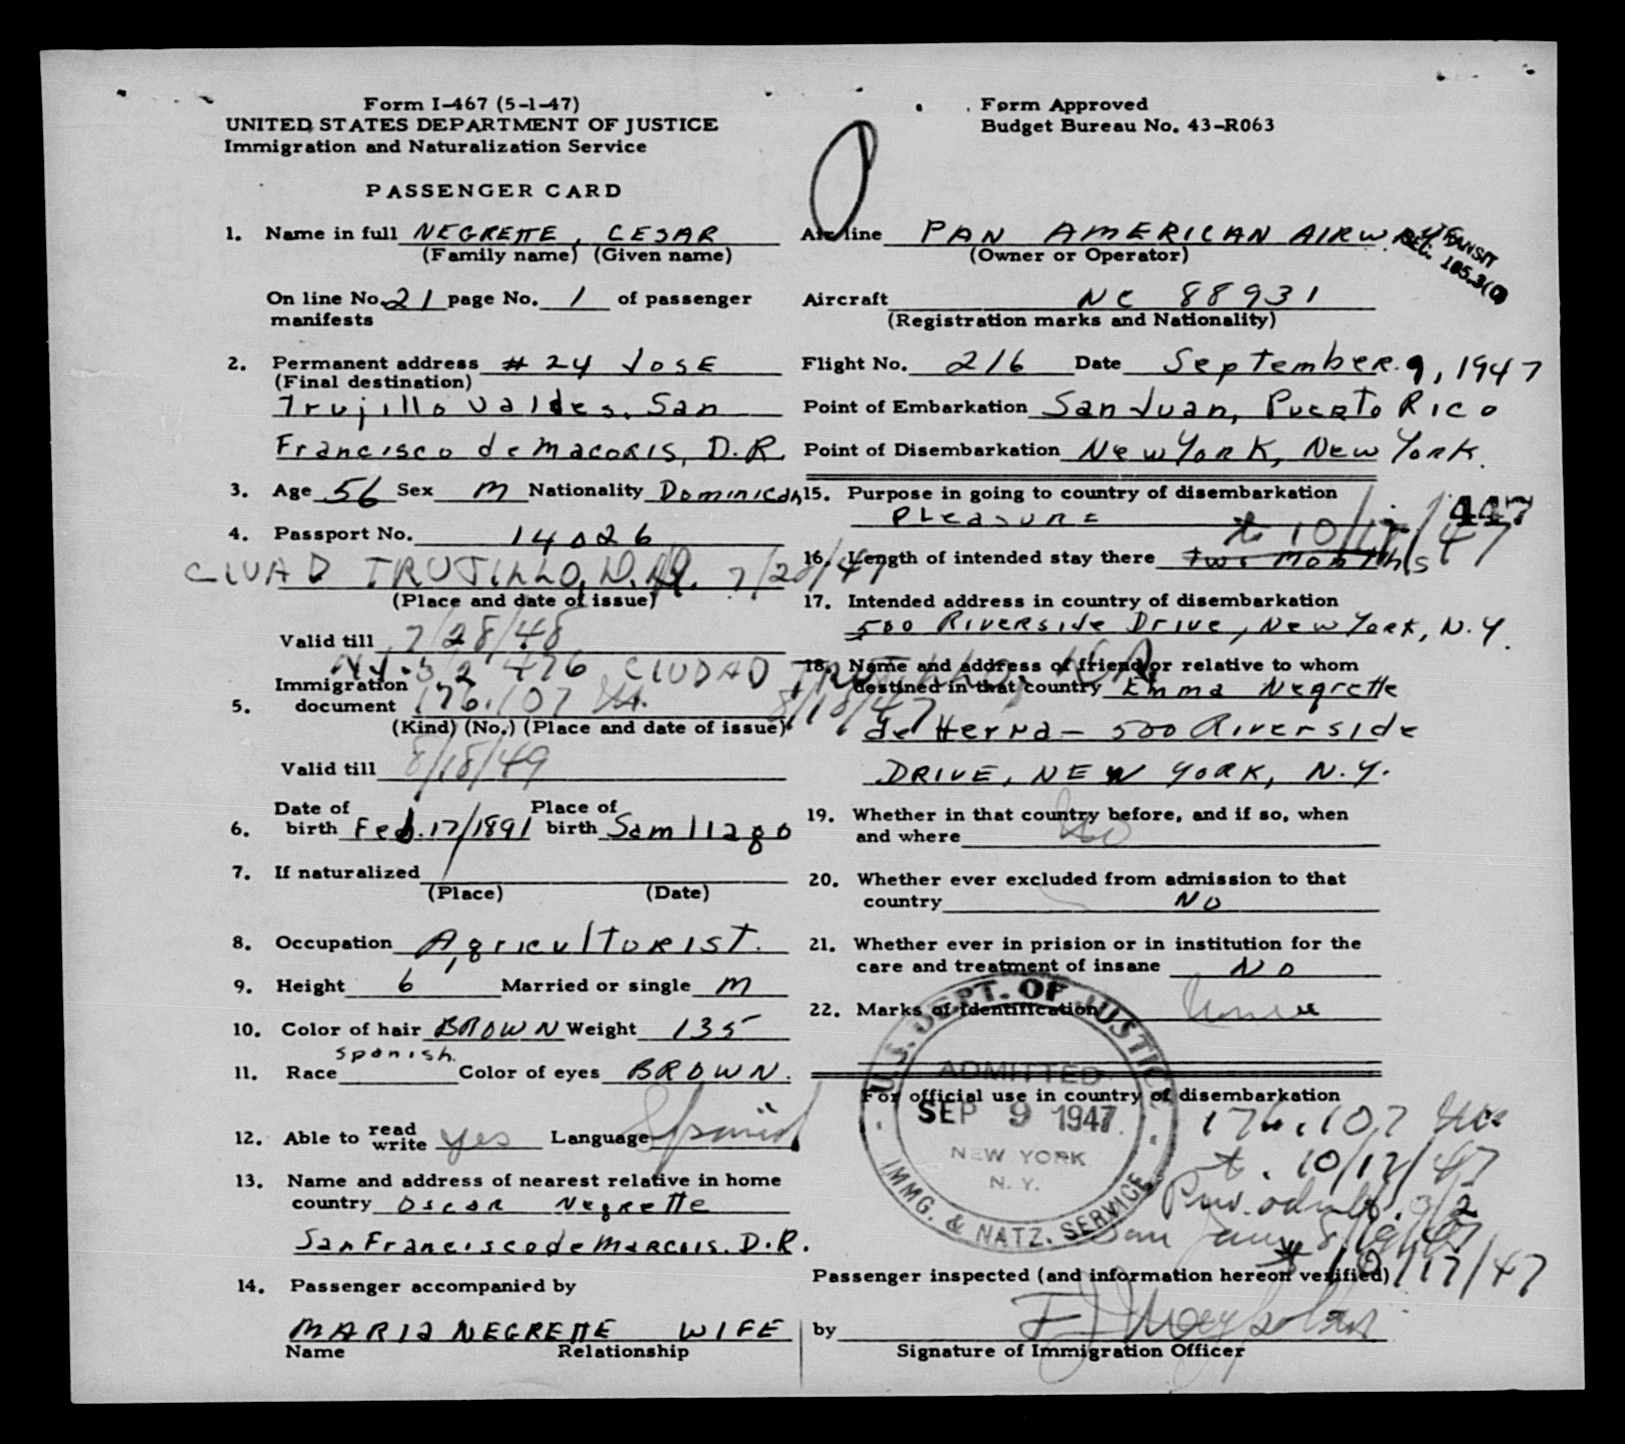 Form I-467 (5-1-47)
UNITED STATES DEPARTMENT OF JUSTICE
Immigration and Naturalization Service
PASSENGER CARD
Form Approved
Budget Bureau No. 43-R063
1. Name in full NEGRETTE, CESAR
(Family name) (Given name)
On line No. 21 page No. 1 of passenger
manifests
2. Permanent address # 24 JOSE
(Final destination)
Trujillo Valdes, San
Francisco de Macoris, D.R.
3. Age 56 Sex M Nationality Dominican
4. Passport No. 14026
CIUAD TRUJILLO, D.R. 7/28/47
(Place and date of issue)
Valid till 7/28/48
3/2 476 CIUDAD TRUJILLO,
5. Immigration
document 176.107 8/18/47
(Kind) (No.) (Place and date of issue)
Valid till 8/18/49
6. Date of birth Feb. 17/1891 Place of birth Santiago
7. If naturalized
(Place) (Date)
8. Occupation Agriculturist.
9. Height 6 Married or single M
10. Color of hair BROWN Weight 135
11. Race Spanish. Color of eyes BROWN.
12. Able to read write yes Language Spanish
13. Name and address of nearest relative in home
country Oscar Negrette
San Francisco de Marcois. D.R.
14. Passenger accompanied by
MARIA NEGRETTE WIFE
Name Relationship
Air line PAN AMERICAN AIRW
(Owner or Operator)
TRANSIT
SEC. 105.3(
Aircraft NC 88931
(Registration marks and Nationality)
Flight No. 216 Date September 9, 1947
Point of Embarkation San Juan, Puerto Rico
Point of Disembarkation New York, New York.
15. Purpose in going to country of disembarkation
Pleasure
447
to 10/17/47
16. Length of intended stay there two months
17. Intended address in country of disembarkation
500 Riverside Drive, New York, N.Y.
18. Name and address of friend or relative to whom
destined in that country Emma Negrette
de Herna - 500 Riverside
DRIVE, NEW YORK, N.Y.
19. Whether in that country before, and if so, when
and where No
20. Whether ever excluded from admission to that
country No
21. Whether ever in prision or in institution for the
care and treatment of insane No
22. Marks of identification None
U.S. DEPT. OF JUSTICE
ADMITTED
SEP 9 1947
NEW YORK
N. Y.
IMMG. & NATZ. SERVICE
For official use in country of disembarkation
176.107
t. 10/17/47
3/2
San Juan
10/17/47
Passenger inspected (and information hereon verified)
by
Signature of Immigration Officer